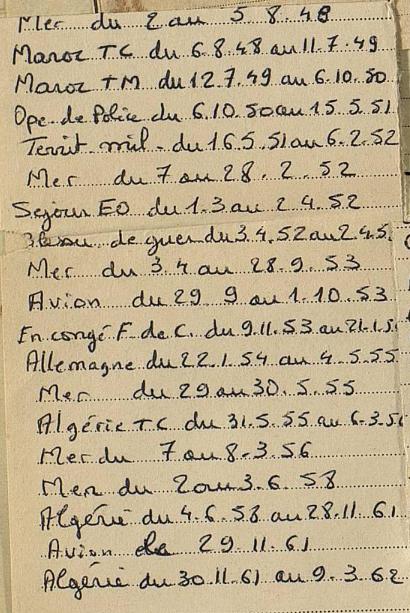 Mer du 2 au 5.8.48
Maroc TC du 6.8.48 au 11.7.49
Maroc TM du 12.7.49 au 6.10.50
Ope. de Police du 6.10.50 au 15.5.51
Territ. mil. du 16.5.51 au 6.2.52
Mer du 7 au 28.2.52
Sejour EO du 1.3 au 2.4.52
de guer du 3.4.52 au 2.4.5
Mer du 3.4 au 28.9.53
Avion du 29 9 au 1.10.53
En congé F. de C. du 9.11.53 au 21.1.5
Allemagne du 22.1.54 au 4.5.55
Mer du 29 au 30.5.55
Algérie TC du 31.5.55 au 6.3.5
Mer du 7 au 8.3.56
Mer du 2 au 3.6.58
Algérie du 4.6.58 au 28.11.61
Avion le 29.11.61
Algérie du 30.11.61 au 9.3.62